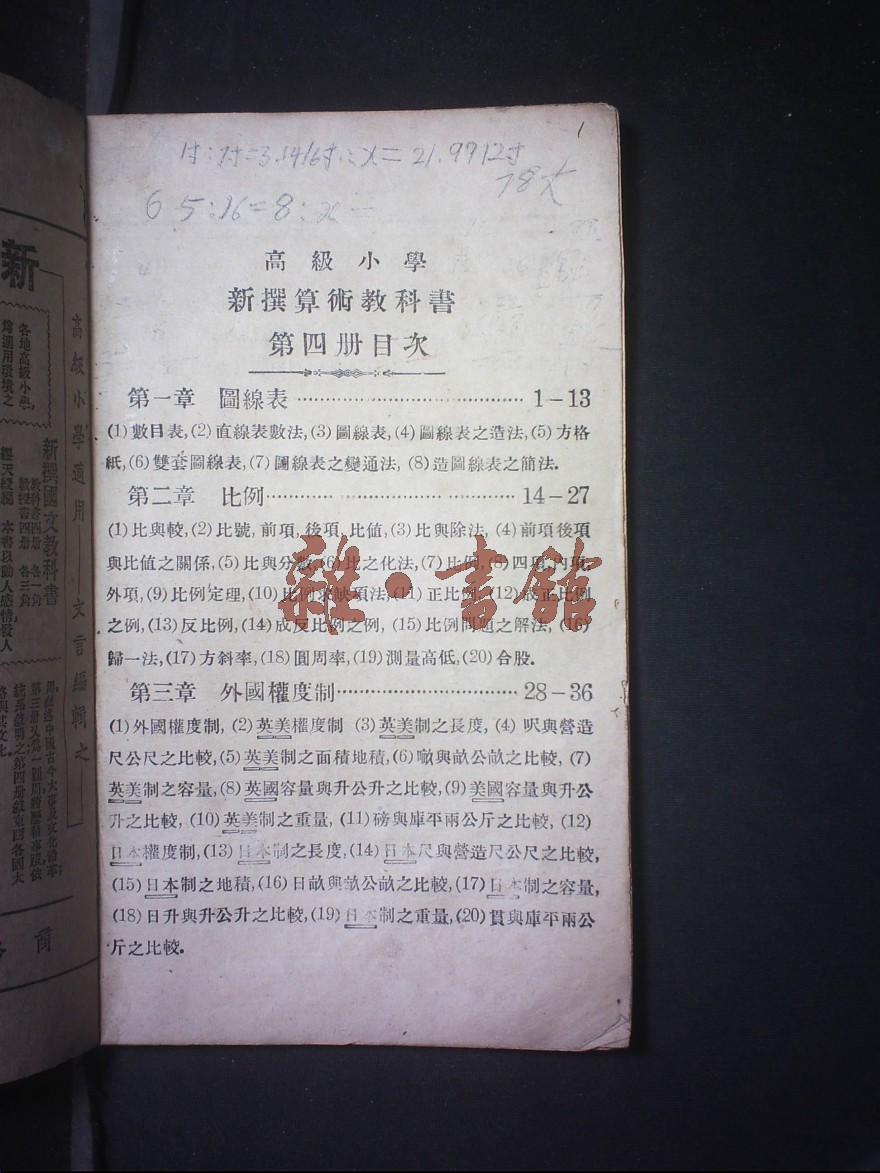 1
寸:7寸=3.1416寸:x=21.9912寸
6 5:16=8:x=
高級小學
新撰算術教科書
第四册目次
第一章 圖線表……………………………1-13
(1)數目表,(2)直線表數法,(3)圖線表,(4)圖線表之造法,(5)方格
紙,(6)雙套圖線表,(7)圖線表之變通法,(8)造圖線表之簡法.
第二章 比例……………………………14-27
(1)比與較,(2)比號,前項,後項,比值,(3)比與除法,(4)前項後項
與比值之關係,(5)比與分數,(6)比之化法,(7)比例,(8)四項,內項,
外項,(9)比例定理,(10)比例求缺項法,(11)正比例,(12)成正比例
之例,(13)反比例,(14)成反比例之例,(15)比例問題之解法,(16)
歸一法,(17)方斜率,(18)圓周率,(19)測量高低,(20)合股.
第三章 外國權度制……………………28-36
(1)外國權度制,(2)英美權度制 (3)英美制之長度,(4)呎與營造
尺公尺之比較,(5)英美制之面積地積,(6)噉與畝公畝之比較,(7)
英美制之容量,(8)英國容量與升公升之比較,(9)美國容量與升公
升之比較,(10)英美制之重量,(11)磅與庫平兩公斤之比較,(12)
日本權度制,(13)日本制之長度,(14)日本尺與營造尺公尺之比較,
(15)日本制之地積,(16)日畝與畝公畝之比較,(17)日本制之容量,
(18)日升與升公升之比較,(19)日本制之重量,(20)貫與庫平兩公
斤之比較.
雜·書館
新
各地高級小學,
爲適用環境之
新撰國文教科書
教科書四册 各一角
教授書四册 各三角
本書以動人感情發人
高級小學適用
文言編輯之
商